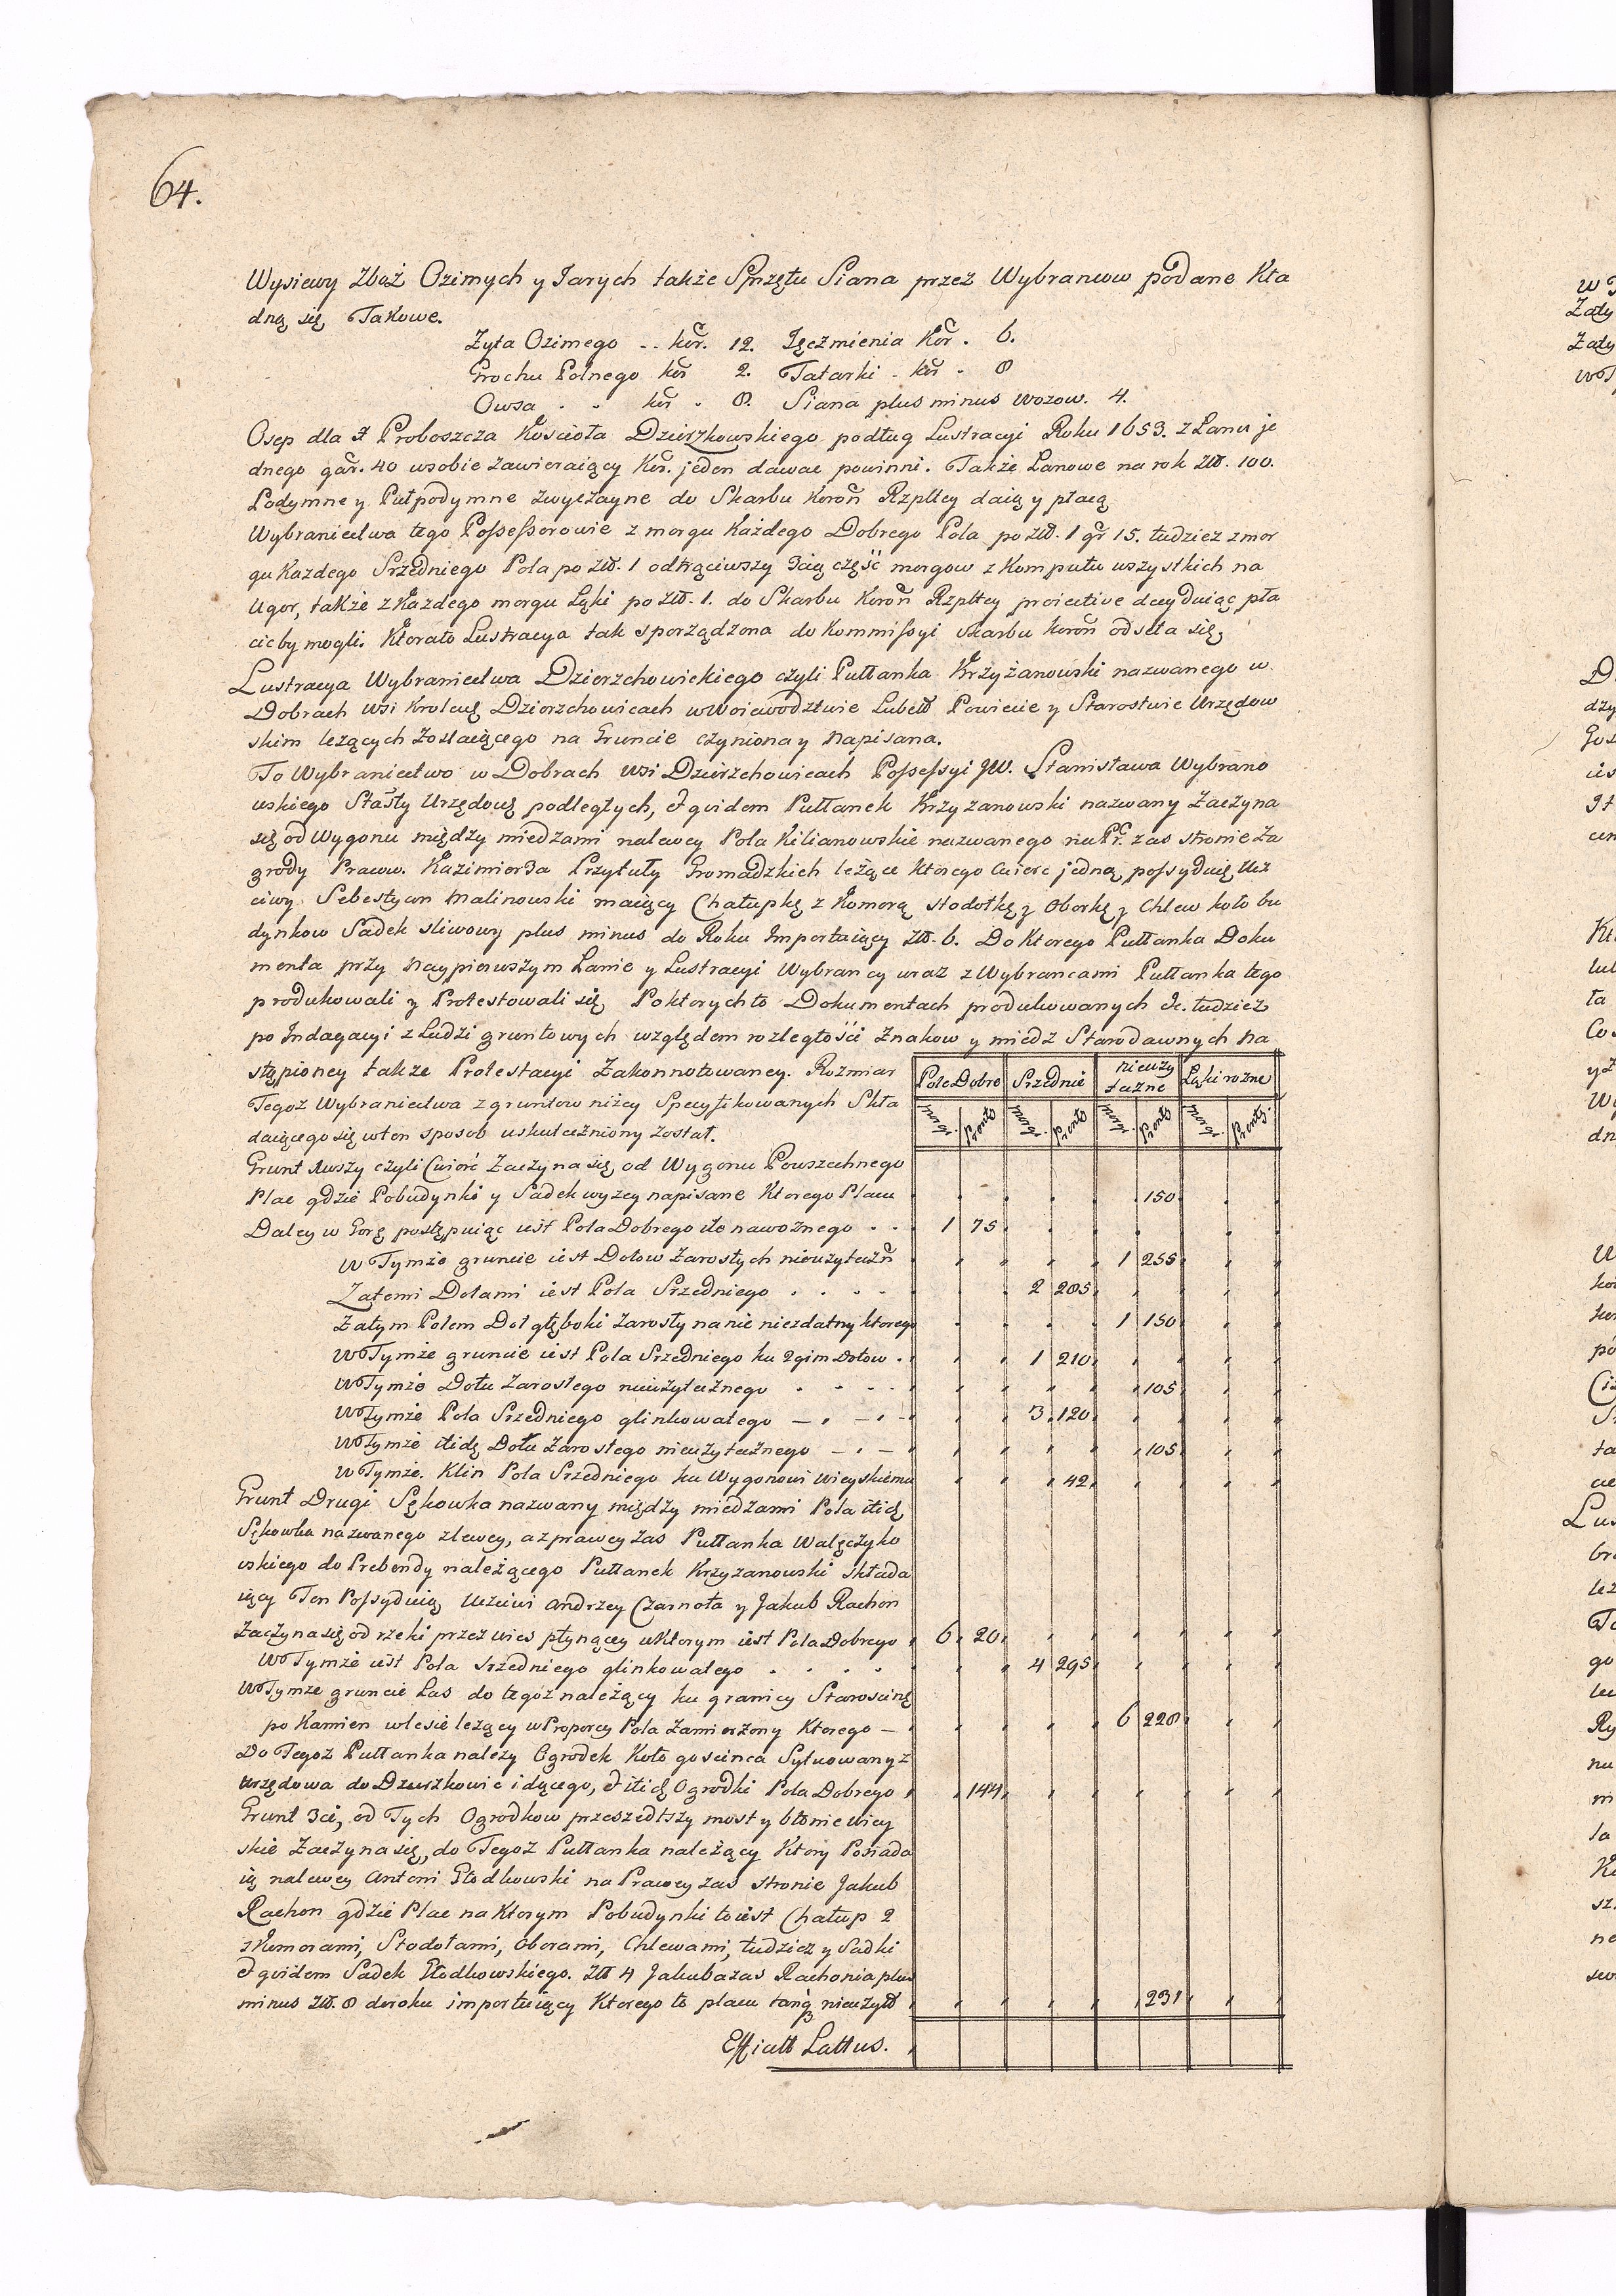 64.
Wysiewy Zboż Ozimych y Jarych także Sprzętu Siana przez Wybrancow podane Kła
dną się Takowe.
Zyta Ozimego .. kor. 12. Jęczmienia Kor. 6.
Grochu Polnego kor 2. Tatarki . kor . 8
Owsa . . kor . 8. Siana plus minus wozow. 4.
Osep dla X Proboszcza Kościoła Dzierzkowskiego podług Lustracyi Roku 1653. z Łanu je
dnego gar. 40 wsobie zawieraiący Kor. jeden dawac powinni. Także Łanowe na rok Zł. 100.
Podymne y Pułpodymne zwyczayne do Skarbu Koron Rzpltey daią y płacą
Wybraniectwa tego Possessorowie z morgu Każdego Dobrego Pola po zł. 1 gr 15. tudziez z mor
gu Kazdego Srzedniego Pola po zł. 1 odtrąciwszy 3cią część morgow z Komputu wszystkich na
Ugor, także z Każdego morgu Łąki po zł. 1. do Skarbu Koron Rzpltey proiective decyduiąc pła
cic by mogli. Ktorato Lustracya tak sporządzona do Kommissyi Skarbu Koron odseła się,
Lustracya Wybraniectwa Dzierzchowickiego czyli Pułłanka Krżyżanowski nazwanego w
Dobrach wsi Krolews Dzierzchowicach w Woiewodztwie Lubel Powiecie y Starostwie Urzędow
skim leżących zostaiącego na Gruncie czyniona y Napisana.
To Wybraniectwo w Dobrach wsi Dzierzchowicach Possessyi JW. Stanisława Wybrano
wskiego Stasty Urzędows podległych, et qvidem Pułłanek Krżyzanowski nazwany Zaczyna
się od Wygonu między miedzami nalewey Pola Kilianowskie nazwanego na Pr. zas stronie Za
grody Pracow. Kazimierza Przytuły Gromadzkich leżące Ktorego Cwierc jedną possyduie Ucz
ciwy Sebestyan Malinowski maiący Chałupkę z Komorą stodołkę y Oborkę y Chlew koło bu
dynkow Sadek sliwowy plus minus do Roku Importuiący Zł. 6. Do Ktorego Pułłanka Doku
menta przy Naypierwszym Łanie y Lustracyi Wybrancy wraz z Wybrancami Pułłanka tego
produkowali y Protestowali się Poktorychto Dokumentach produkowanych &c. tudziez
po Indagacyi z Ludzi gruntowych względem rozległości Znakow y miedz Starodawnych na
stąpioney także Protestacyi Zakonnotowaney. Rozmiar
Tegoż Wybraniectwa z gruntow niżey Specyfikowanych Skła
daiącego się wten sposob uskuteczniony został.
Pole Dobre Srzednie nieuży teczne Łąki rożne
morg. Pręto morg. Pręto morg. Pręto morg. Pręty.
Grunt 1wszy czyli Cwierć Zaczyna się od Wygonu Powszechnego
Plac gdzie Pobudynki y Sadek wyzey napisane Ktorego Placu 150
Daley w Gorę postępuiąc iest Pola Dobrego iłonawoznego . . 1 75
W Tymże gruncie iest Dołow Zarosłych nieużyteczn 1 255
Zatemi Dołami iest Pola Srzedniego . . . . 2 285
Zatym Polem Doł głęboki Zarosły nanic niezdatny ktorego 1 150
W Tymże gruncie iest Pola Srzedniego ku 2gim Dołow . 1 210
W Tymże Dołu Zarosłego nieużytecznego . . . . 105
W Tymże Pola Srzedniego glinkowatego — . — . - 3 120
W Tymże itidę Dołu Zarosłego nieużytecznego — . — 105
W Tymże. Klin Pola Srzedniego ku Wygonowi Wieyskiemu 42
Grunt Drugi Sękowka nazwany między miedzami Pola itidę
Sękowka nazwanego zlewey, a z prawey zas Pułłanka Walęczyko
wskiego do Prebendy należącego Pułłanek Krzyzanowski składa
iący Ten Possyduią Uczciwi Andrzey Czarnota y Jakub Rachon
Zaczyna się od rzeki przez wies płynącey wktorym iest Pola Dobrego 6 20
W Tymże iest Pola Srzedniego glinkowatego . . . . 4 295
W Tymże gruncie Las do tegoż należący ku granicy Staroscins
po Kamien wlesie leżący w Proporcy Pola Zamierzony Ktorego — 6 228
Do Tegoż Pułłanka należy Ogrodek Koło goscinca Sytuowany z
Urzędowa do Dzierzkowic idącego, et itidę Ogrodki Pola Dobrego 144
Grunt 3ci, od Tych Ogrodkow przeszedłszy most y błonie wiey
skie Zaczyna się, do Tegoz Pułłanka należący Ktory Posiada
ią nalewey Antoni Głodkowski na Prawey zas stronie Jakub
Rachon gdzie Plac na Ktorym Pobudynki to iest Chałup 2
z Komorami, Stodołami, Oborami, Chlewami, tudziez y Sadki
et qvidem Sadek Głodkowskiego. Zł 4 Jakuba zas Rachonia plus
minus Zł. 8 doroku importuiący Ktorego to placu tanq nieużył 231
Efficitt Lattus.